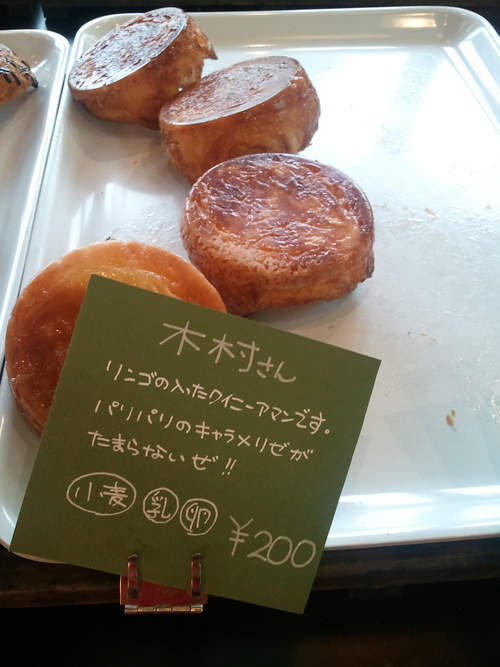 木村さん
リンゴの入ったクイニーアマンです。
パリパリのキャラメリゼが
たまらないぜ!!
小麦 乳 卵 ¥200